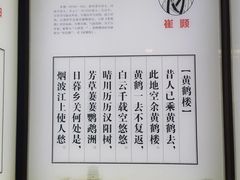 崔颢
【黄鹤楼】
昔人已乘黄鹤去，
此地空余黄鹤楼。
黄鹤一去不复返，
白云千载空悠悠。
晴川历历汉阳树，
芳草萋萋鹦鹉洲。
日暮乡关何处是，
烟波江上使人愁。